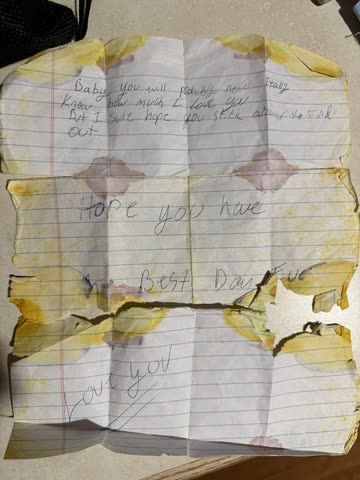 Baby, you will probably never really
Know how much I Love you
But I sure hope you stick around to Find
out
Hope you have
Best Day Eve
Love you